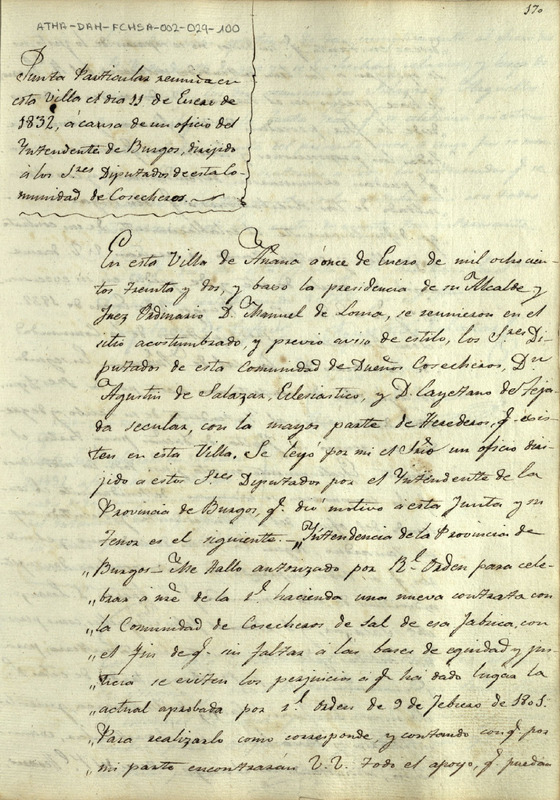 170
ATHA-DAH-FCHSA-002-029-100
Junta Particular reunida en
esta Villa el dia 11 de Enero de
1832, á causa de un oficio del
Yntendente de Burgos, dirijido
á los Sres Diputados de esta Co-
munidad de Cosecheros.
En esta Villa de Añana á once de Enero de mil ochocien-
tos treinta y dos, y bajo la presidencia de su Alcalde y
Juez Ordinario D. Manuel de Loma, se reunieron en el
sitio acostumbrado y previo aviso de estilo, los Sres Di-
putados de esta Comunidad de Dueños Cosecheros, Dn
Agustin de Salazar, Eclesiastico, y D. Cayetano de Teja-
da secular, con la mayor parte de Herederos, q.e exis-
ten en esta Villa. Se leyó por mi el Srio un oficio diri-
jido a estos Sres Diputados por el Yntendente de la
Provincia de Burgos, q.e dió motivo a esta Junta y su
tenor es el siguiente.= „Yntendencia de la Provincia de
„Burgos= Me hallo autorizado por Rl. Orden para cele-
„brar á nre de la rl. hacienda una nueva contrata con
„la Comunidad de Cosecheros de Sal de esa fabrica, con
„el fin de q.e sin faltar á las bases de equidad y jus-
„ticia se eviten los perjuicios a q.e ha dado lugar la
„actual aprobada por rl. Orden de 9 de Febrero de 1801.
„Para realizarlo como corresponde, y contando con q.e por
„mi parte encontrarán V.V. todo el apoyo, q.e puedan